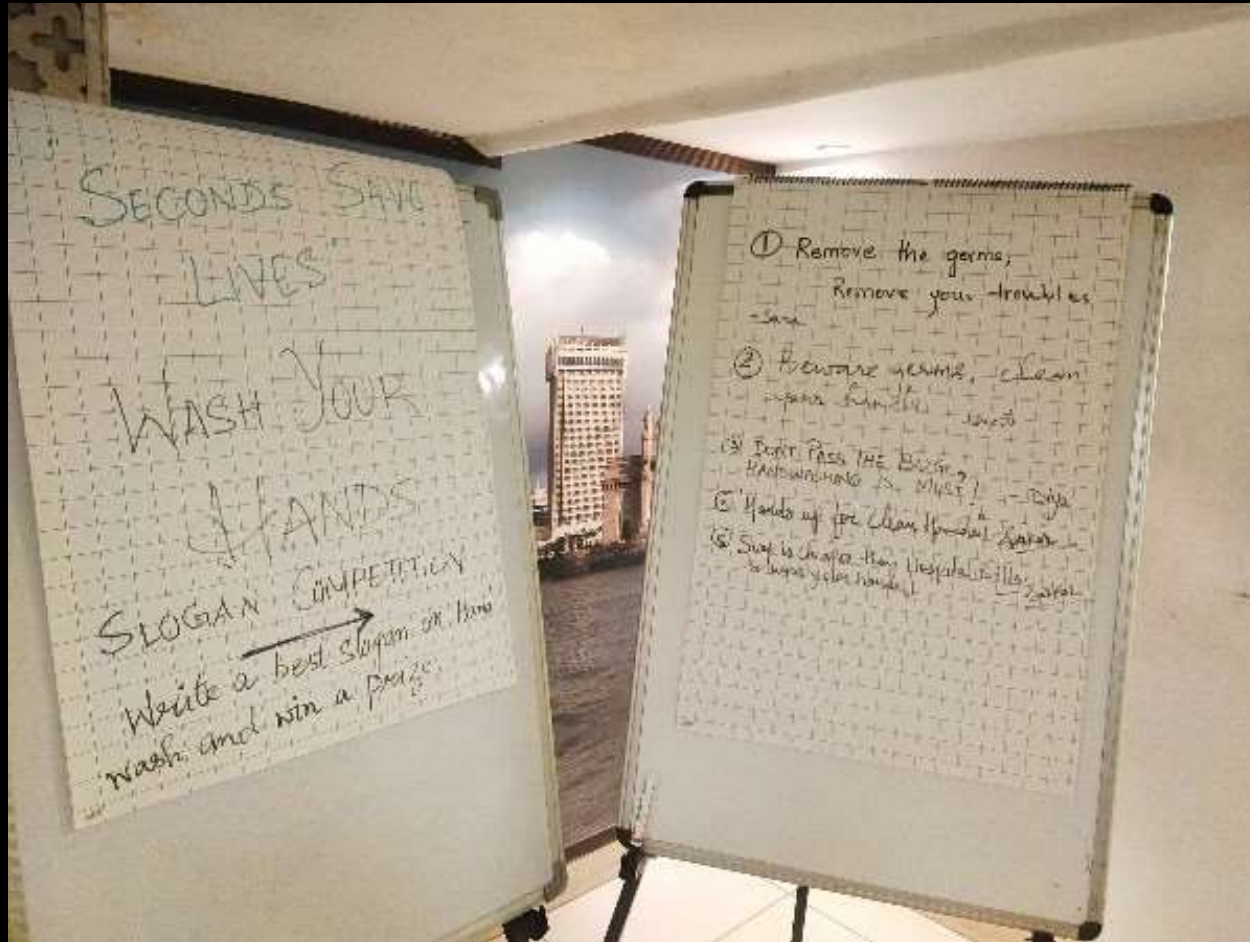 "SECONDS SAVE
LIVES"
WASH YOUR
HANDS
SLOGAN COMPETITION
Write a best slogan on Hand
wash and win a prize.
① Remove the germs,
Remove your troubles
② Beware germs, clean
your hands
③ DON'T PASS THE BUG,
HANDWASHING IS MUST! - Diya
Hands up for clean Hands!
Soap is cheaper than Hospital bills,